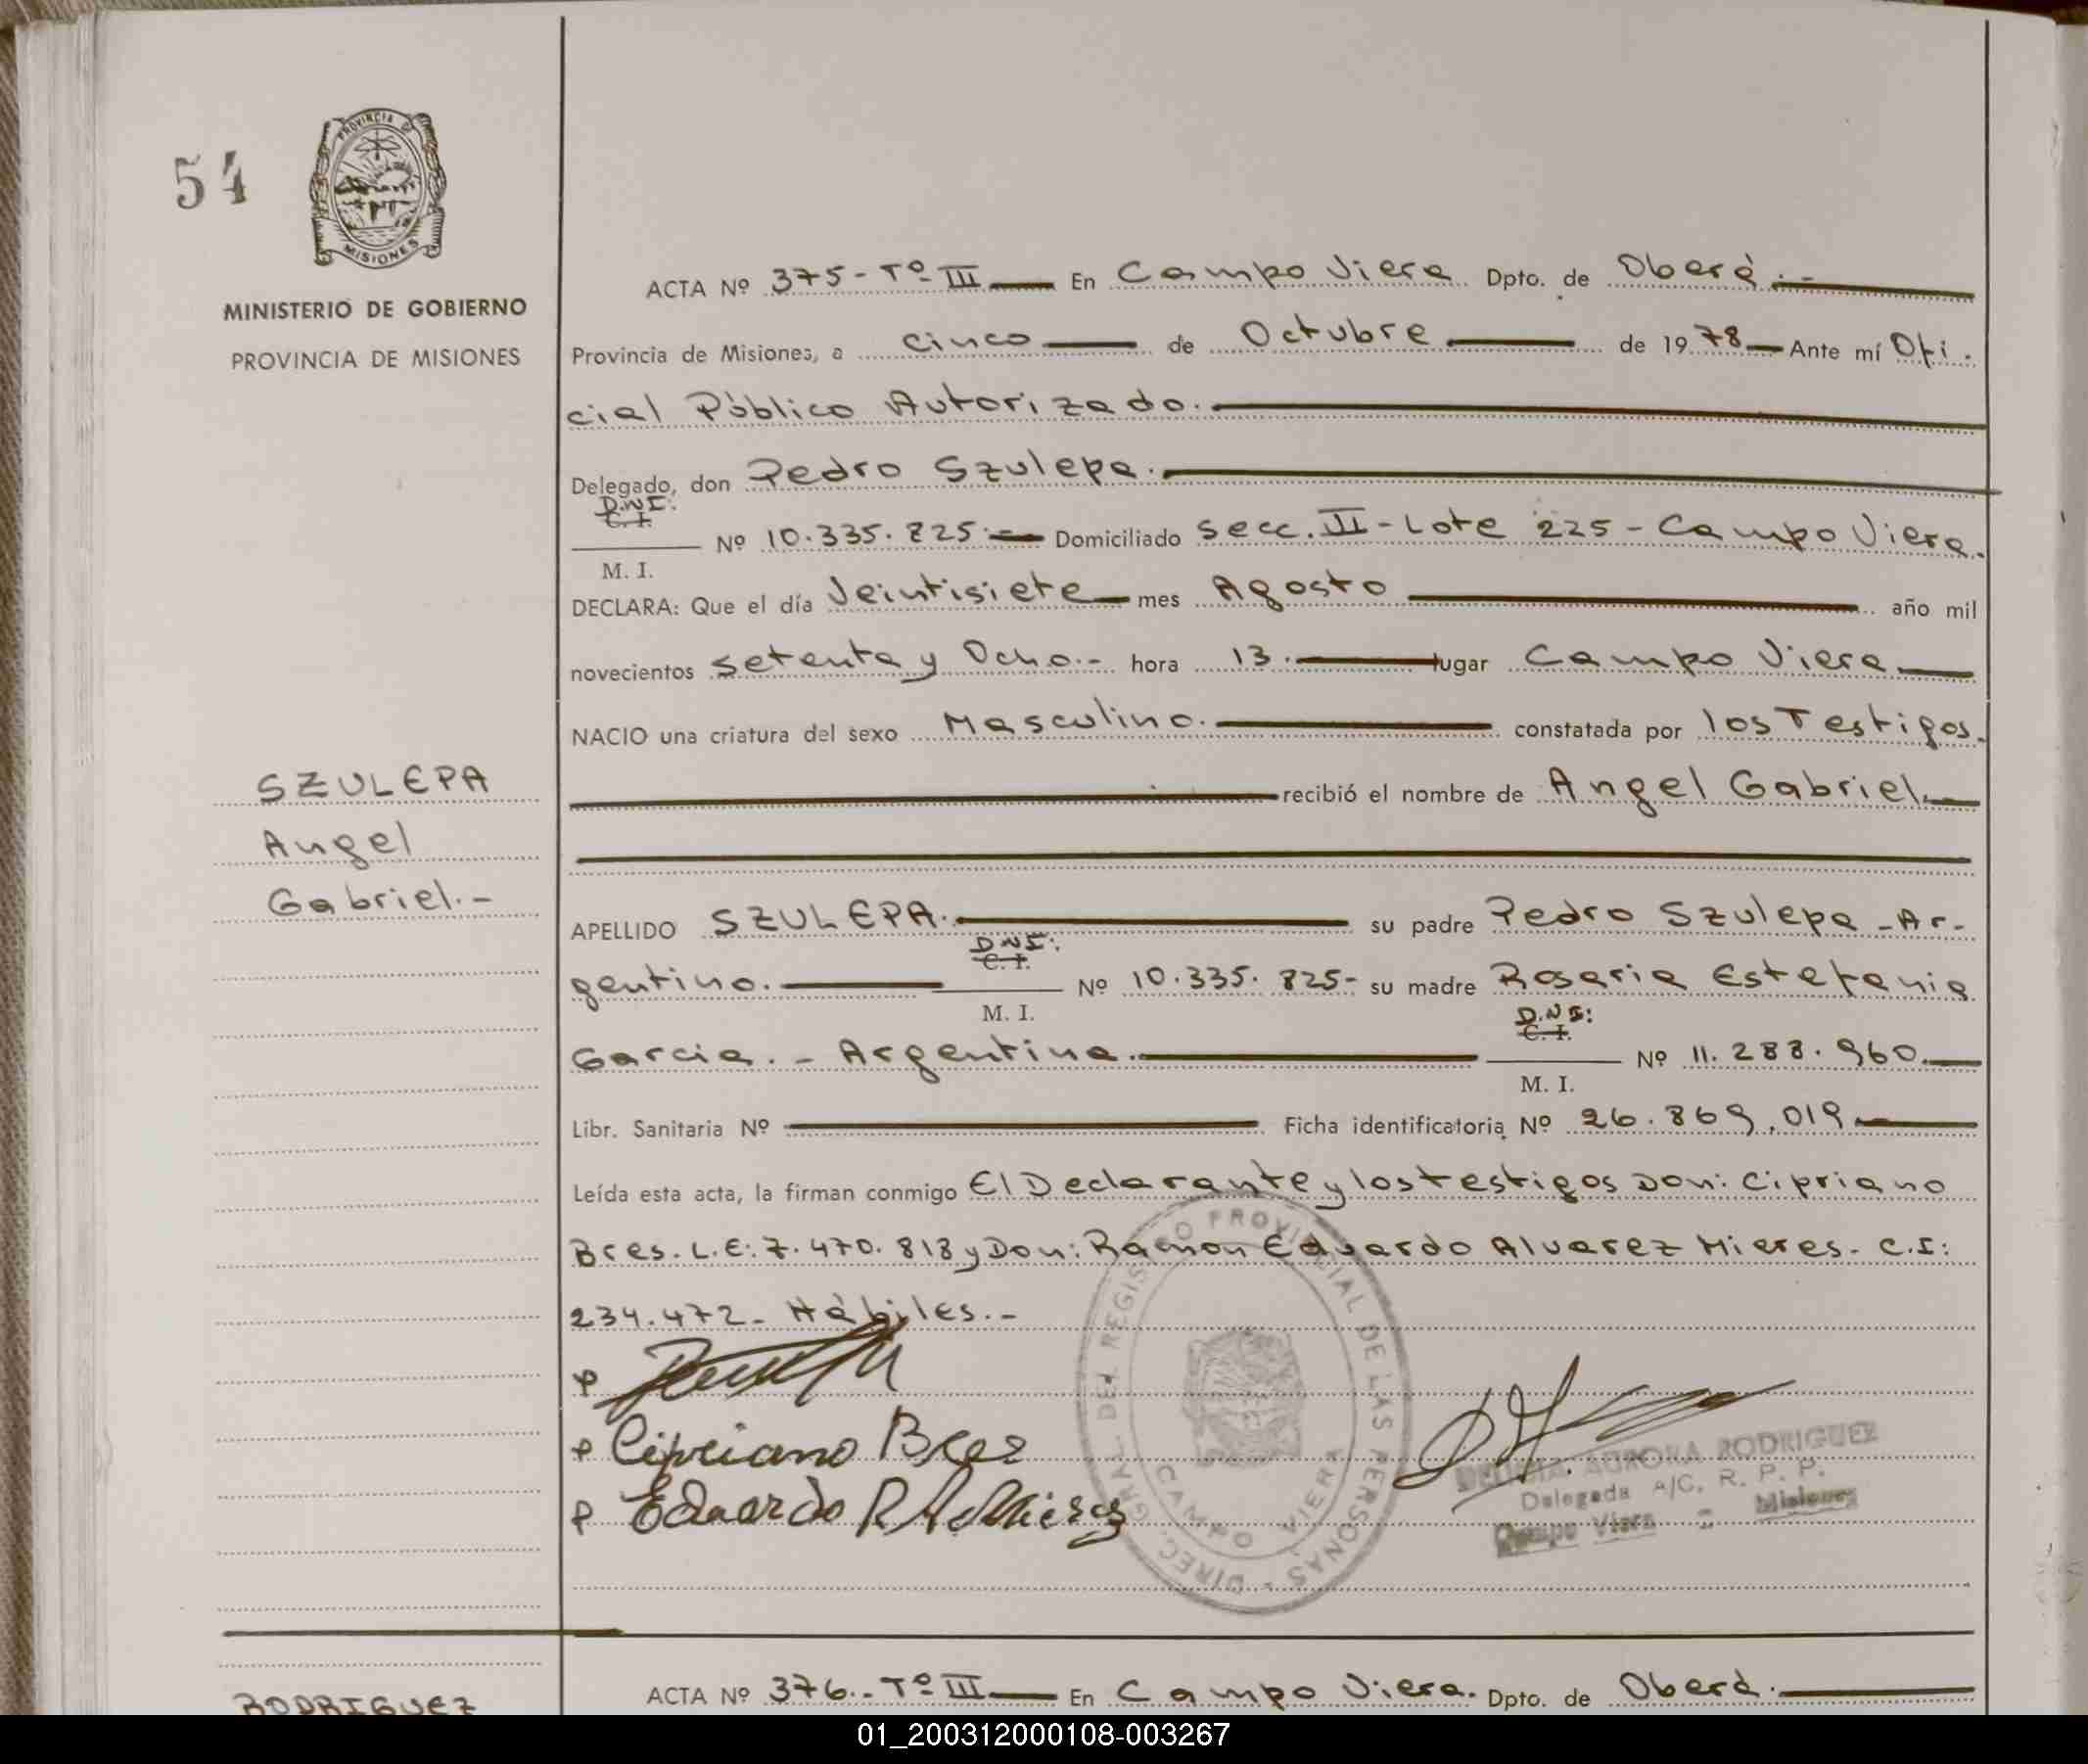 54
PROVINCIA DE
MISIONES
MINISTERIO DE GOBIERNO
PROVINCIA DE MISIONES
ACTA Nº 375 - Tº III — En Campo Viera Dpto. de Oberá.-
Provincia de Misiones, a cinco — de Octubre — de 1978 — Ante mí Ofi.
cial Público Autorizado.
Delegado, don Pedro Szulepa.
D.N.I:
C. I.
M. I. Nº 10.335.825.- Domiciliado Secc. II - Lote 225 - Campo Viera.
DECLARA: Que el día Veintisiete — mes Agosto — año mil
novecientos setenta y Ocho.- hora 13. — lugar Campo Viera
NACIO una criatura del sexo Masculino. — constatada por los Testigos.
— recibió el nombre de Angel Gabriel.
SZULEPA
Angel
Gabriel.-
APELLIDO SZULEPA. — su padre Pedro Szulepa - Ar-
D.N.I:
C. I.
gentino. — M. I. Nº 10.335.825- su madre Rosaria Estefania
D.N.I:
C. I.
Garcia. - Argentina. — M. I. Nº 11.288.960.
Libr. Sanitaria Nº — Ficha identificatoria Nº 26.869.019
Leída esta acta, la firman conmigo El Declarante y los testigos Don: Cipriano
Bres. L.E: 7.470.818 y Don: Ramon Eduardo Alvarez Mieres. C.I:
234.472- Hábiles.-
Cipriano Bres
Eduardo R A Mieres
DIREC. GRAL. DEL REGISTRO PROVINCIAL DE LAS PERSONAS -
CAMPO VIERA
AURORA RODRIGUEZ
Delegada A/C. R. P. P.
Campo Viera - Misiones
ACTA Nº 376.- Tº III — En Campo Viera. Dpto. de Oberá.
RODRIGUEZ
01_200312000108-003267